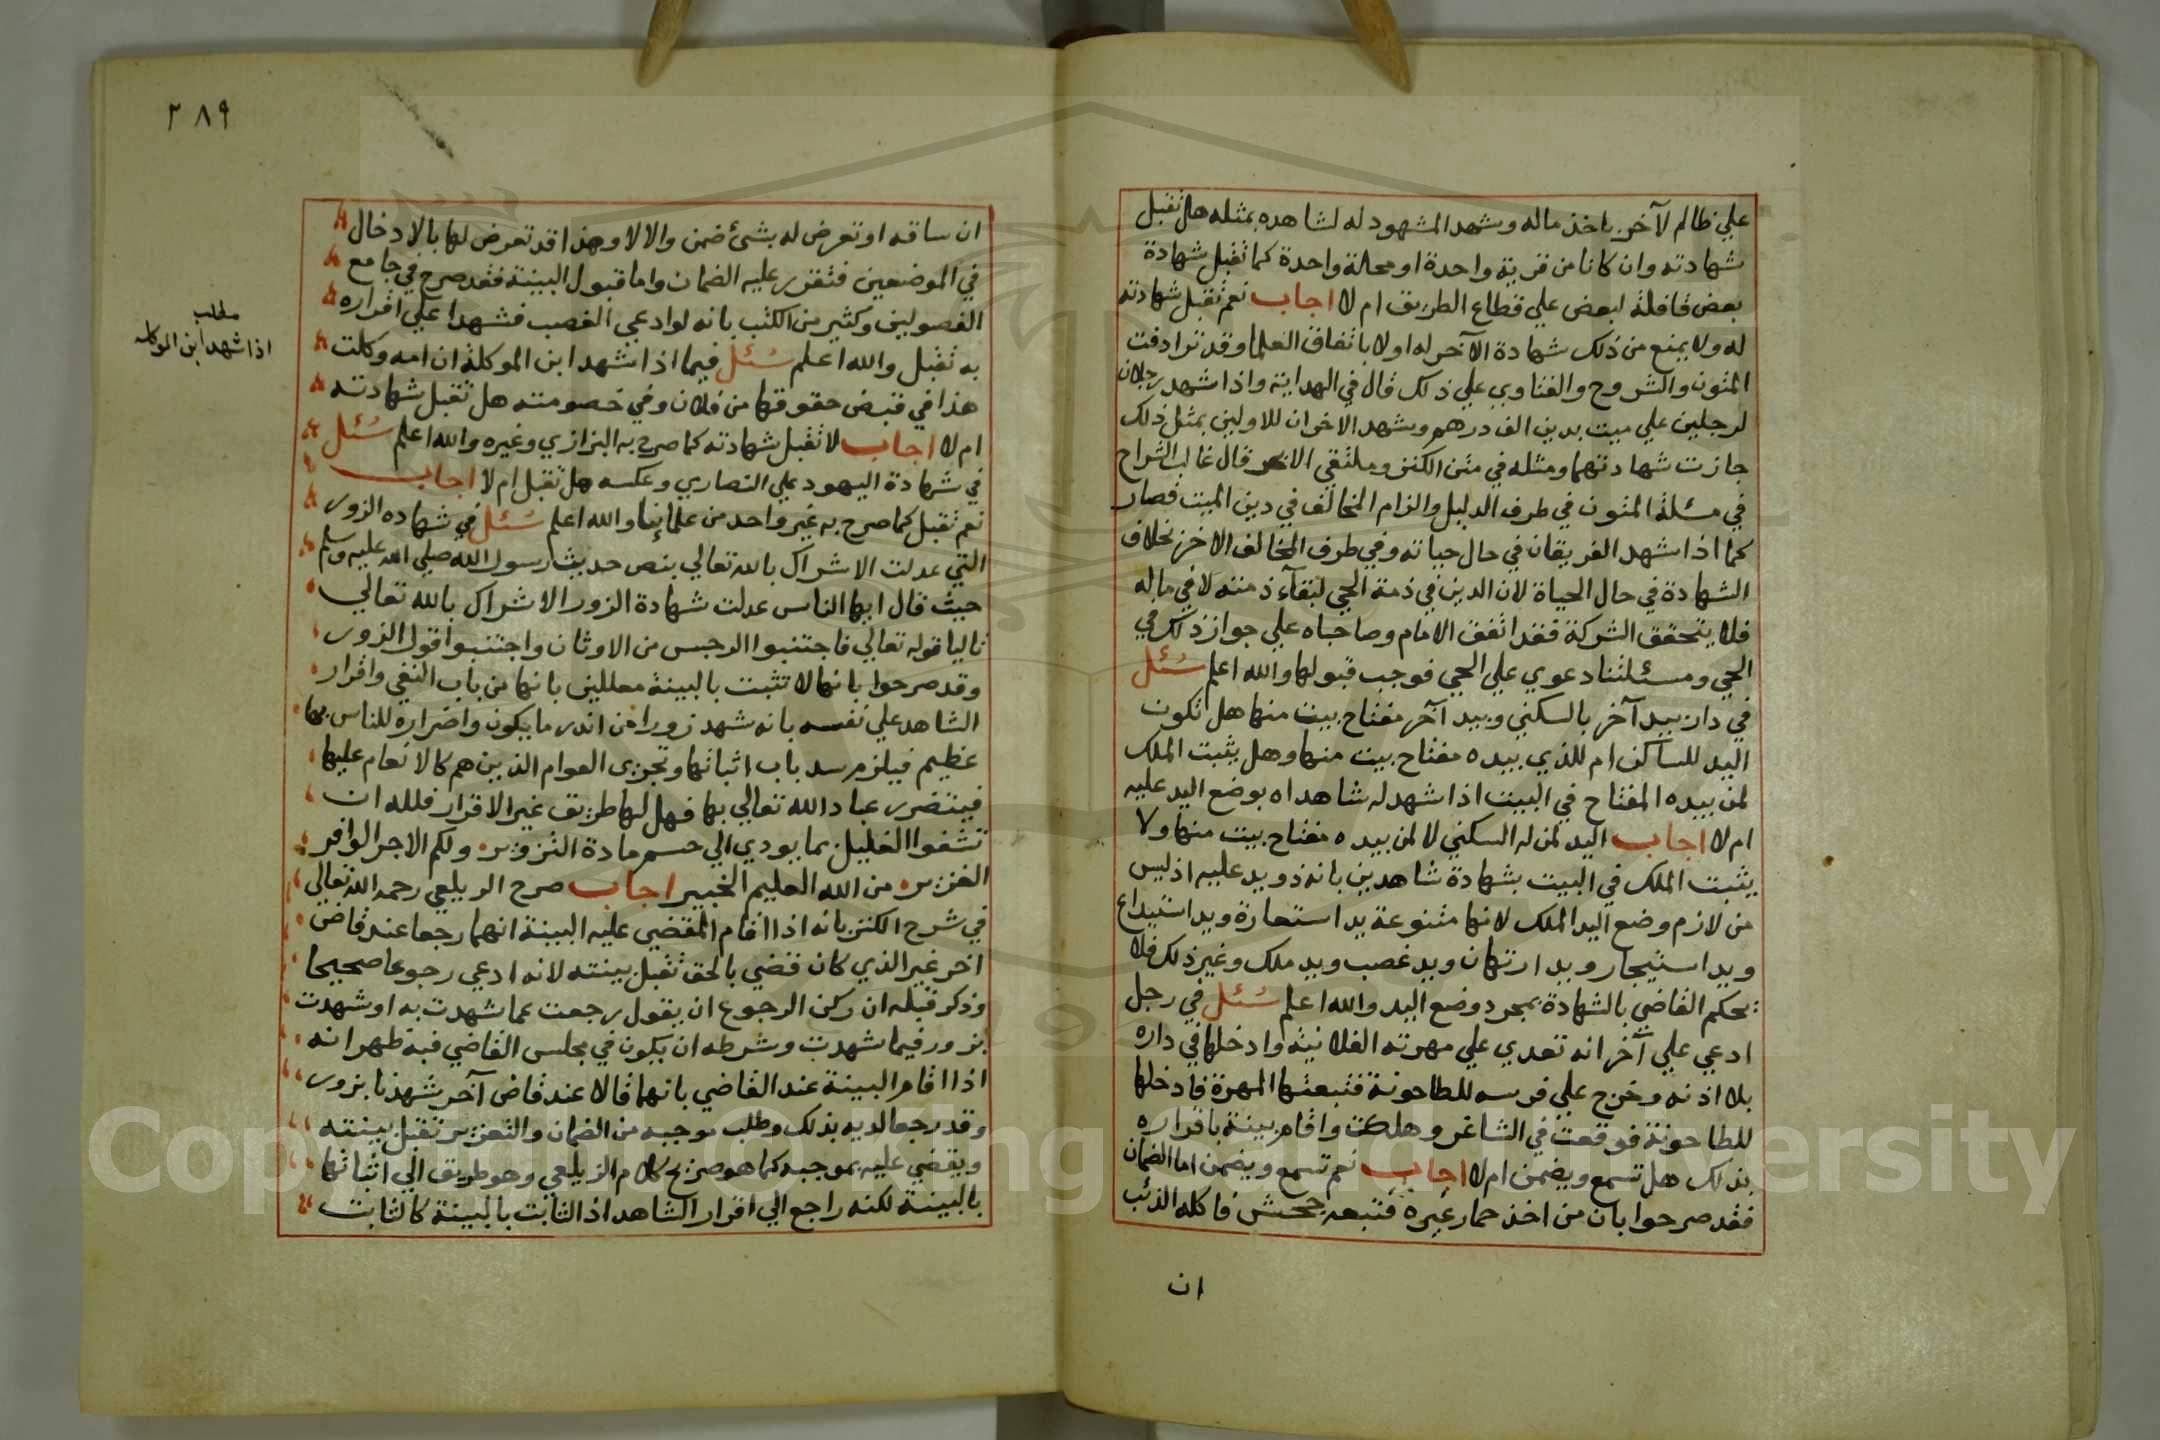 علي ظالم لآخر باخذ ماله وشهد المشهود له لشاهده بمثله هل تقبل
شهادته وان كانا من قرية واحدة او محلة واحدة كما تقبل شهادة
بعض قافلة لبعض علي قطاع الطريق ام لا اجاب نعم تقبل شهادته
له ولا يمنع من ذلك شهادة الآخر له اولا باتفاق العلما وقد توادفت
المتون والشروح والفتاوي علي ذلك قال في الهداية واذا شهد رجلان
لرجلين علي ميت بدين الف درهم وشهد الاخران للاولين بمثل ذلك
جازت شهادتهما ومثله في متن الكنز وملتقي الابحر قال غالب الشراح
في مسئلة المتون في طرف الدليل والزام المخالف في دين الميت فصار
كما اذا شهد الفريقان في حال حياته وفي طرف المخالف الاخر بخلاف
الشهادة في حال الحياة لان الدين في ذمة الحي لبقآء ذمته لا في ماله
فلا يتحقق الشركة فقد اتفق الامام وصاحباه علي جواز ذلك في
الحي ومسئلتنا دعوي علي الحي فوجب قبولها والله اعلم سئل
في دار بيد آخر بالسكني وبيد آخر مفتاح بيت منها هل تكون
اليد للساكن ام للذي بيده مفتاح بيت منها وهل يثبت الملك
لمن بيده المفتاح في البيت اذا شهد له شاهداه بوضع اليد عليه
ام لا اجاب اليد لمن له السكني لا لمن بيده مفتاح بيت منها ولا
يثبت الملك في البيت بشهادة شاهدين بانه ذو يد عليه اذ ليس
من لازم وضع اليد الملك لانها متنوعة يد استعارة ويد استيداع
ويد استيجار ويد ارتهان ويد غصب ويد ملك وغير ذلك فلا
يحكم القاضي بالشهادة بمجرد وضع اليد والله اعلم سئل في رجل
ادعي علي آخر انه تعدي علي مهرته الفلانية وادخلها في داره
بلا اذنه وخرج علي فرسه للطاحونة فتبعتها المهرة فادخلها
للطاحونة فوقعت في الشاغر وهلكت واقام بينة باقراره
بذلك هل تسمع ويضمن ام لا اجاب نعم تسمع ويضمن اما الضمان
فقد صرحوا بان من اخذ حمار غيره فتبعه جحش فاكله الذئب
ان
٢٨٩
ان ساقه او تعرض له بشئ ضمن والا لا وهذا قد تعرض لها بالادخال
في الموضعين فتقرر عليه الضمان واما قبول البينة فقد صرح في جامع
الفصولين وكثير من الكتب بانه لو ادعي الغصب فشهدا علي اقراره
به تقبل والله اعلم سئل فيما اذا شهد ابن الموكلة ان امه وكلت
هذا في قبض حقوقها من فلان وفي خصومته هل تقبل شهادته
ام لا اجاب لا تقبل شهادته كما صرح به البزازي وغيره والله اعلم سئل
في شهادة اليهود علي النصاري وعكسه هل تقبل ام لا اجاب
نعم تقبل كما صرح به غير واحد من علمائنا والله اعلم سئل في شهاده الزور
التي عدلت الاشراك بالله تعالي بنص حديث رسول الله صلي الله عليه وسلم
حيث قال ايها الناس عدلت شهادة الزور الاشراك بالله تعالي
تاليا قوله تعالي فاجتنبوا الرجس من الاوثان واجتنبوا قول الزور
وقد صرحوا بانها لا تثبت بالبينة معللين بانها من باب النفي واقرار
الشاهد علي نفسه بانه شهد زورا من اندر ما يكون واضراره للناس بها
عظيم فيلزم سد باب اثباتها وتجري العوام الذين هم كالانعام عليها
فيتضرر عباد الله تعالي بها فهل لها طريق غير الاقرار فلله ان
تشفوا الغليل بما يودي الي حسم مادة التزوير ولكم الاجر الوافر
الغزير من الله العليم الخبير اجاب صرح الزيلعي رحمه الله تعالي
في شرح الكنز بانه اذا اقام المقضي عليه البينة انهما رجعا عند قاض
اخر غير الذي كان قضي بالحق تقبل بينته لانه ادعي رجوعا صحيحا
وذكر قبله ان ركن الرجوع ان يقول رجعت عما شهدت به او شهدت
بزور فيما شهدت وشرطه ان يكون في مجلس القاضي فبه ظهر انه
اذا اقام البينة عند القاضي بانهما قالا عند قاض آخر شهدنا بزور
وقد رجعا لديه بذلك وطلب موجبه من الضمان والتعزير تقبل بينته
ويقضي عليه بموجبه كما هو صريح كلام الزيلعي وهو طريق الي اثباتها
بالبينة لكنه راجع الي اقرار الشاهد اذ الثابت بالبينة كالثابت
مطلب
اذا شهد ابن الموكله
Copyright © King Saud University